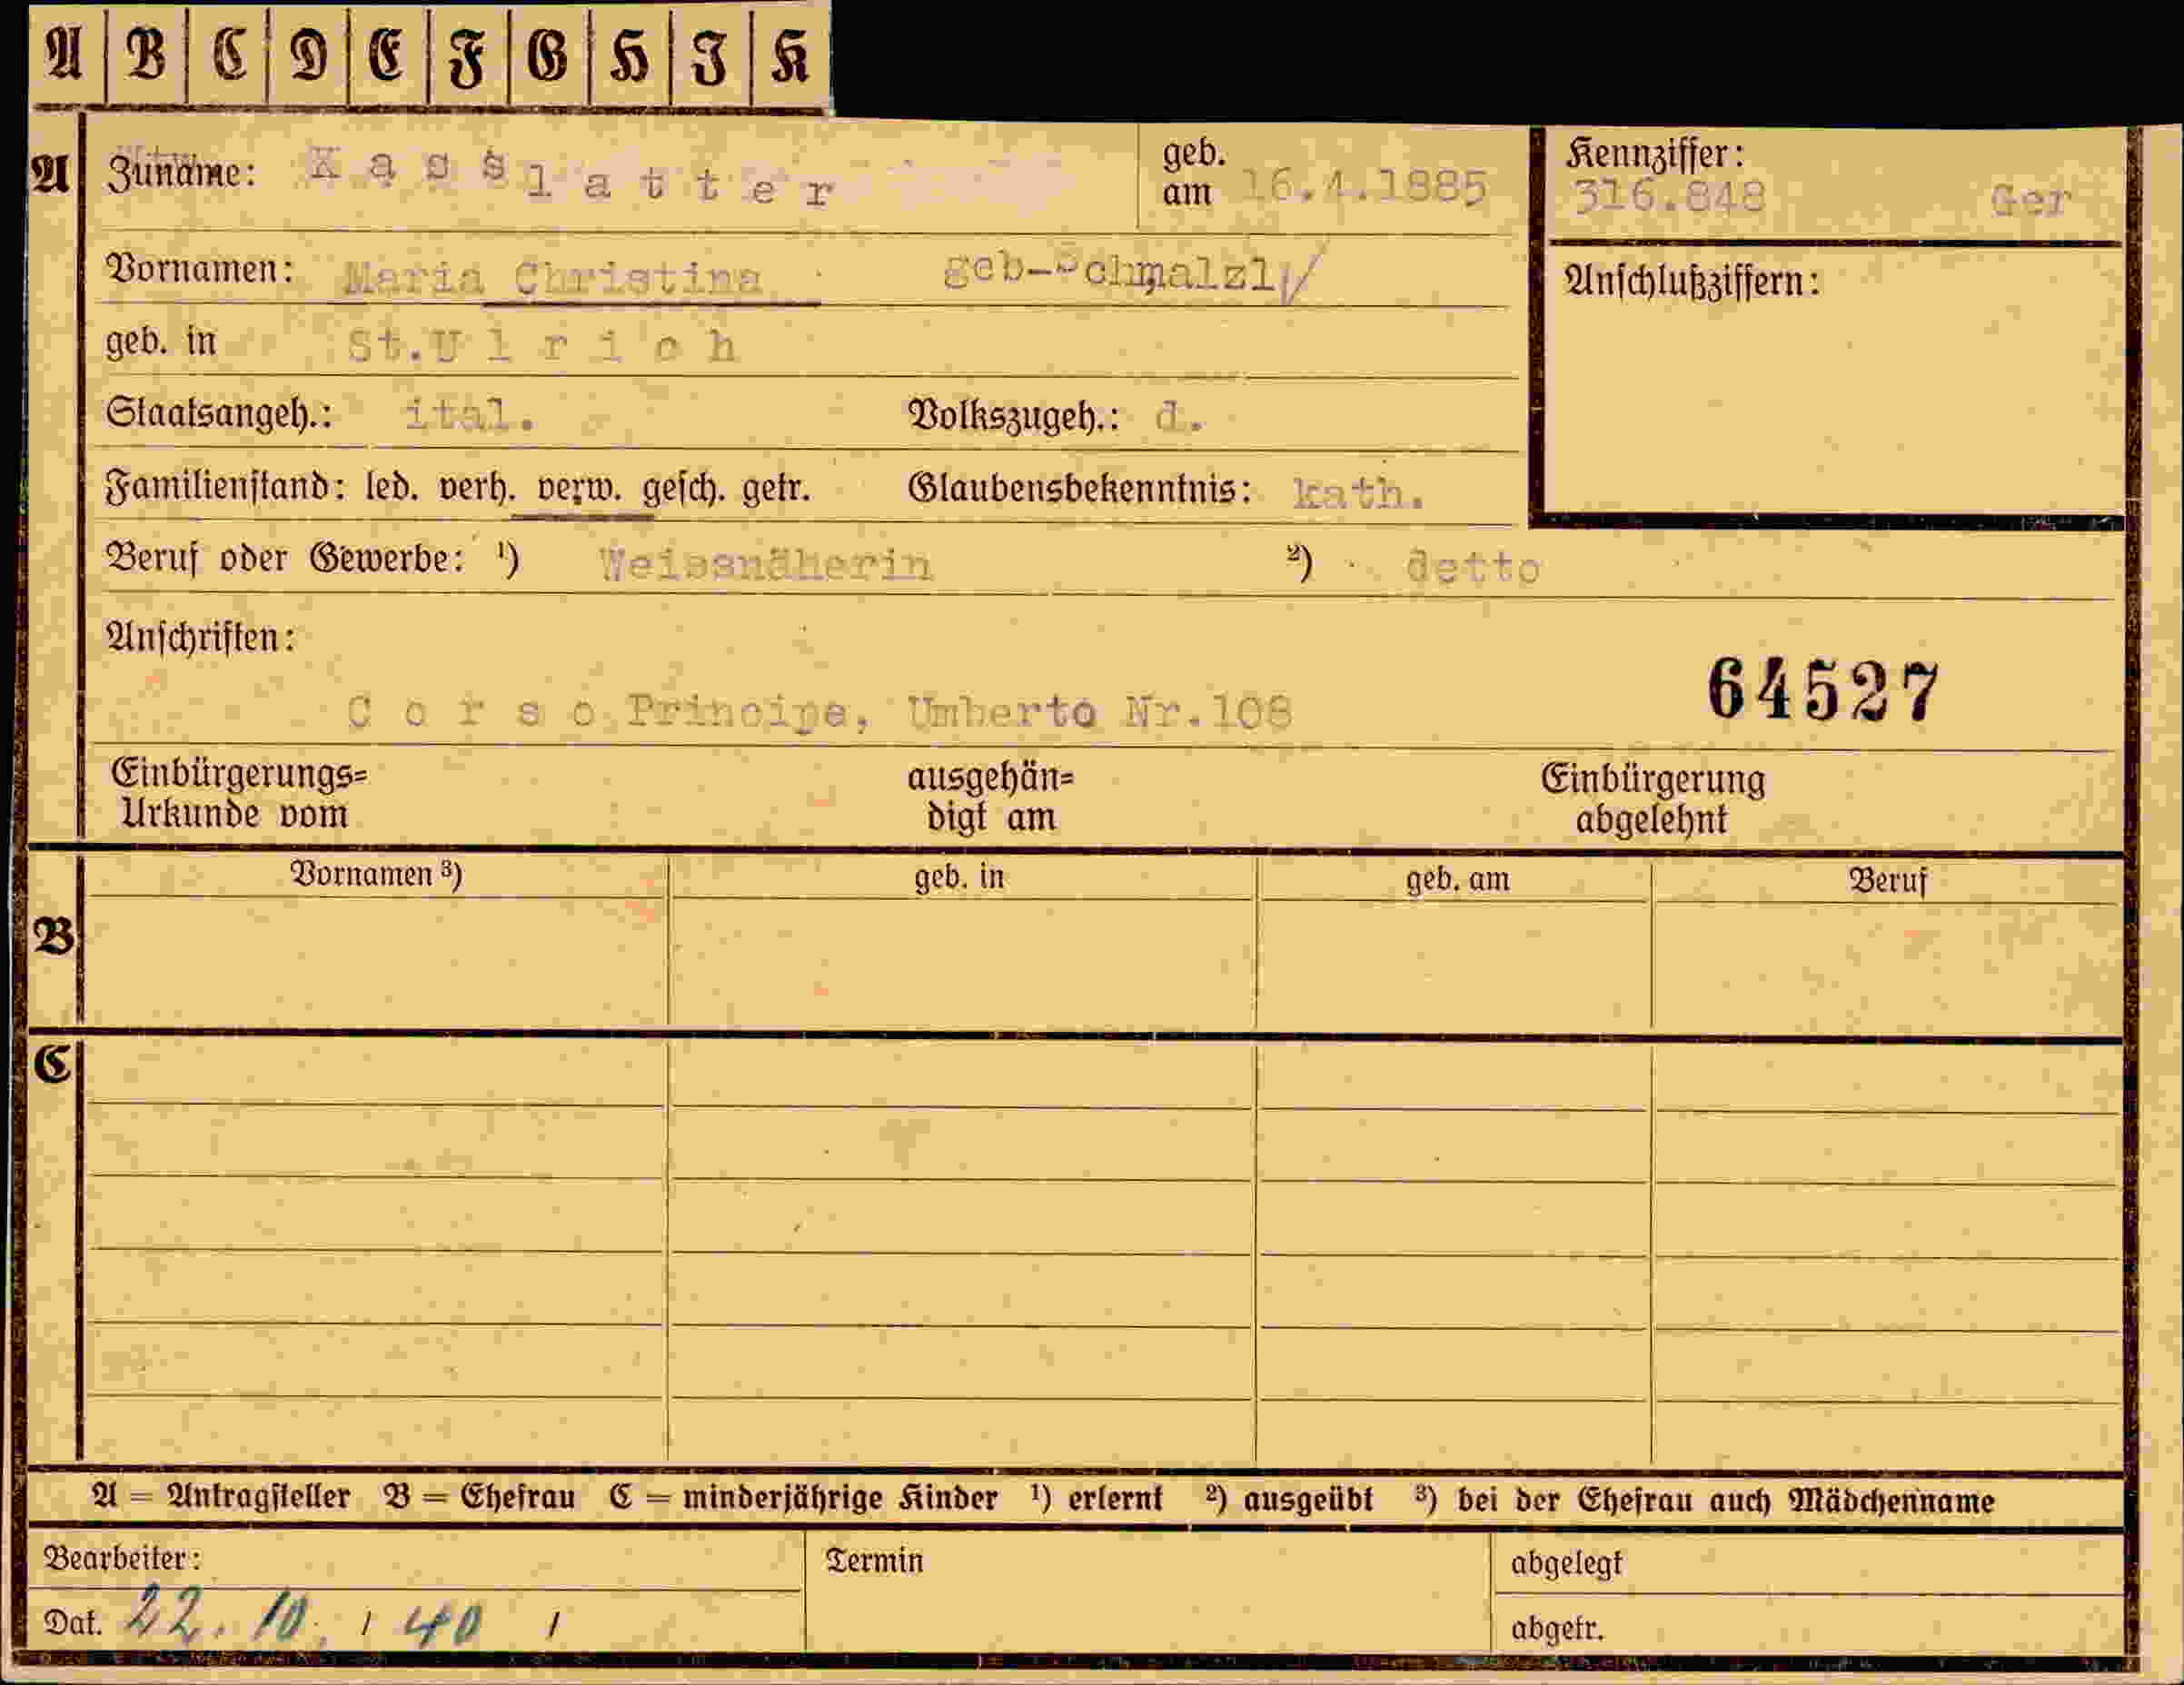 A B C D E F G H I K
A Zuname: Kasslatter geb. am 16.4.1885 Kennziffer: 316.848 Ger
Vornamen: Maria Christina geb-Schmalzl/ Anschlußziffern:
geb. in St.Ulrich
Staatsangeh.: ital. Volkszugeh.: d.
Familienstand: led. verh. verw. gesch. getr. Glaubensbekenntnis: kath.
Beruf oder Gewerbe: ¹) Weissnäherin ²) detto
Anschriften:
64527
Corso Principe, Umberto Nr.108
Einbürgerungs= ausgehän= Einbürgerung
Urkunde vom digt am abgelehnt
Vornamen ³) geb. in geb. am Beruf
B
C
A = Antragsteller B = Ehefrau C = minderjährige Kinder ¹) erlernt ²) ausgeübt ³) bei der Ehefrau auch Mädchenname
Bearbeiter: Termin abgelegt
Dat. 22. 10. / 40 / abgetr.